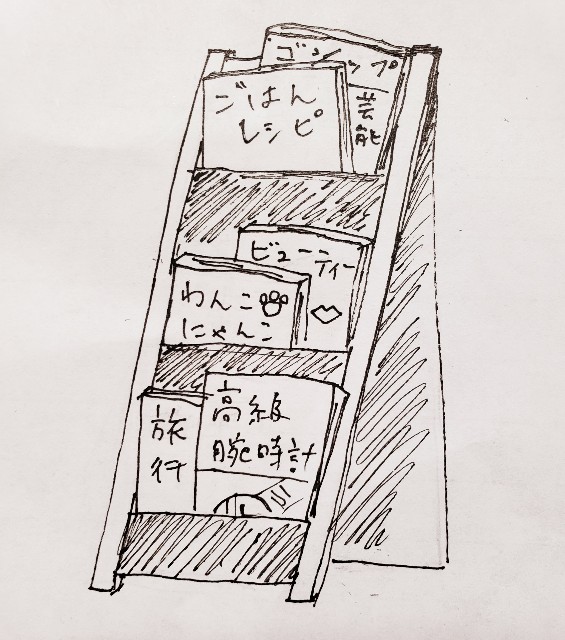 ゴシップ
芸能
ごはん
レシピ
ビューティー
わんこ
にゃんこ
旅行
高級
腕時計